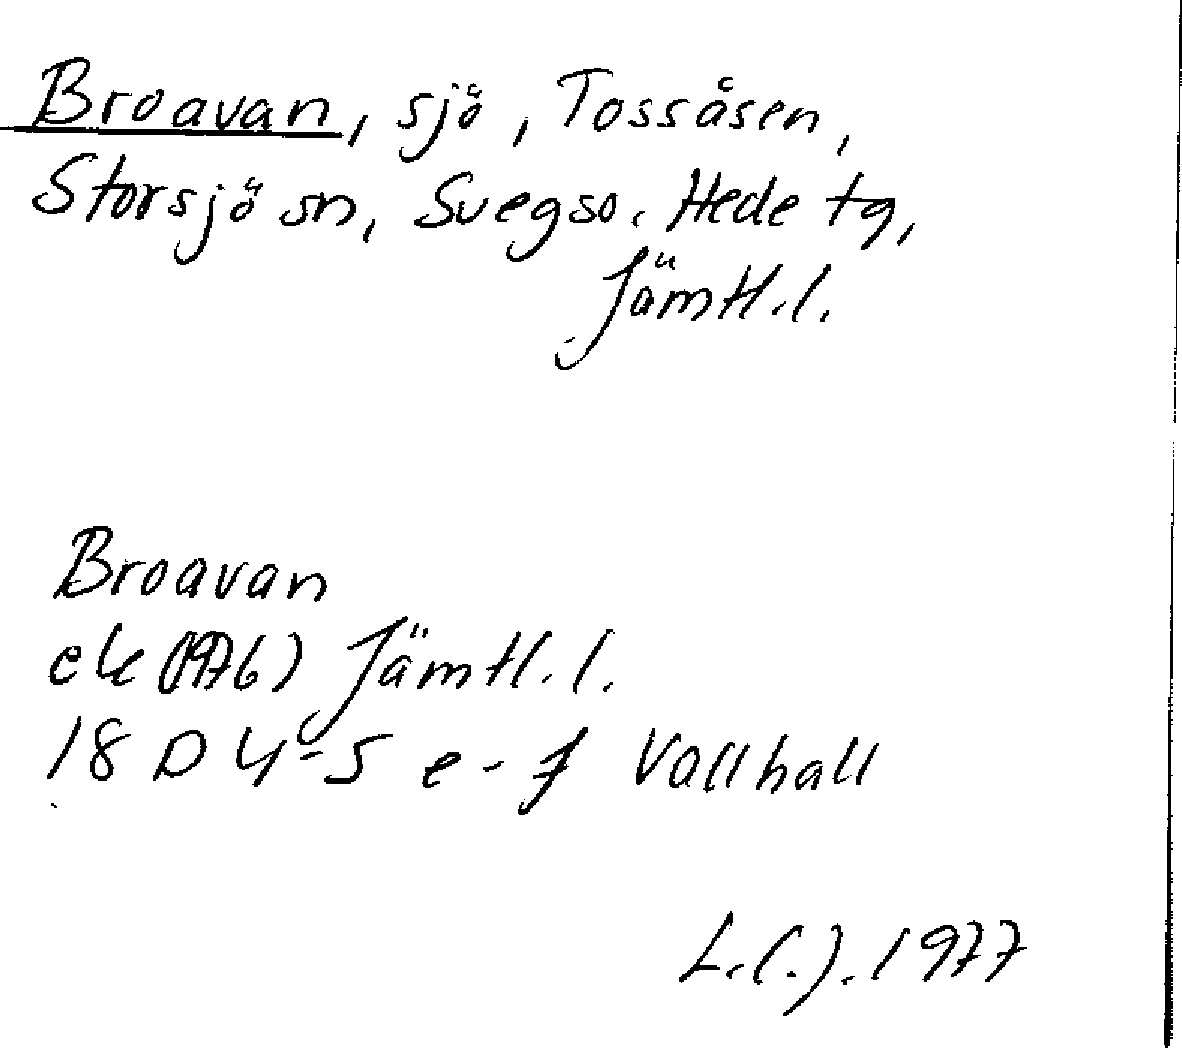 Broavan, sjö, Tossåsen,
Storsjö sn, Svegs o. Hede tg,
Jämtl. l.
Broavan
ek (1976) Jämtl. l.
18 D 4-5 e-f Vallhall
1977